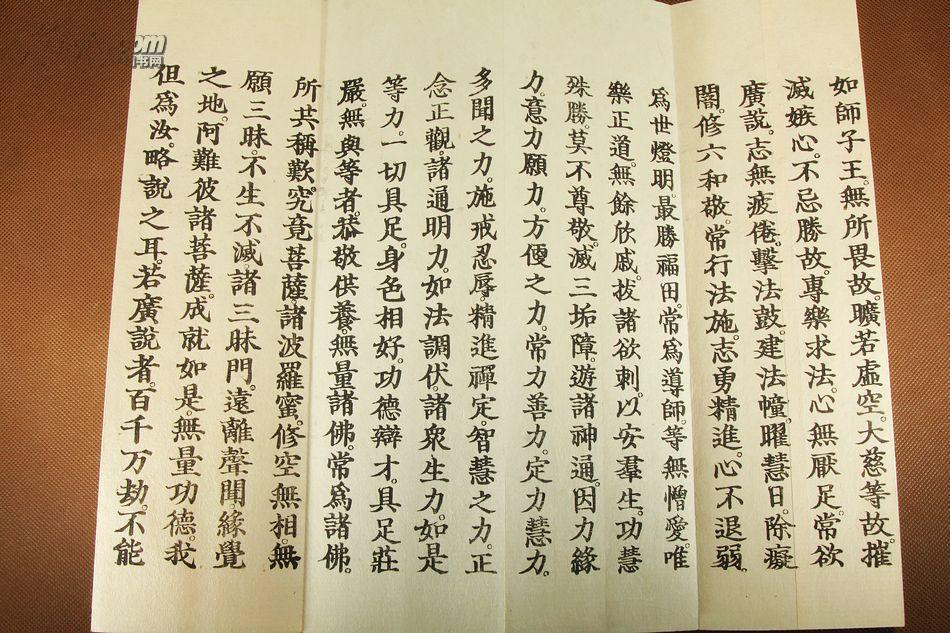 如師子王。無所畏故。曠若虛空。大慈等故。摧
滅嫉心。不忌勝故。專樂求法。心無厭足。常欲
廣說。志無疲倦。擊法鼓。建法幢。曜慧日。除癡
闇。修六和敬。常行法施。志勇精進。心不退弱。
為世燈明。最勝福田。常為導師。等無憎愛。唯
樂正道。無餘欣戚。拔諸欲刺。以安羣生。功慧
殊勝。莫不尊敬。滅三垢障。遊諸神通。因力緣
力。意力願力。方便之力。常力善力。定力慧力。
多聞之力。施戒忍辱。精進禪定。智慧之力。正
念正觀。諸通明力。如法調伏。諸衆生力。如是
等力。一切具足。身色相好。功德辯才。具足莊
嚴。無與等者。恭敬供養。無量諸佛。常為諸佛。
所共稱歎。究竟菩薩。諸波羅蜜。修空無相。無
願三昧。不生不滅。諸三昧門。遠離聲聞。緣覺
之地。阿難彼諸菩薩。成就如是。無量功德。我
但為汝。略說之耳。若廣說者。百千万劫。不能
.com
书网